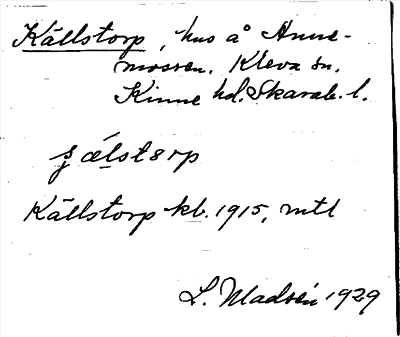 Källstorp, hus å Anne-
mossen. Kleva sn.
Kinne hd. Skarab. l.
Källstorp kb. 1915, mtl
L. Madsén 1929